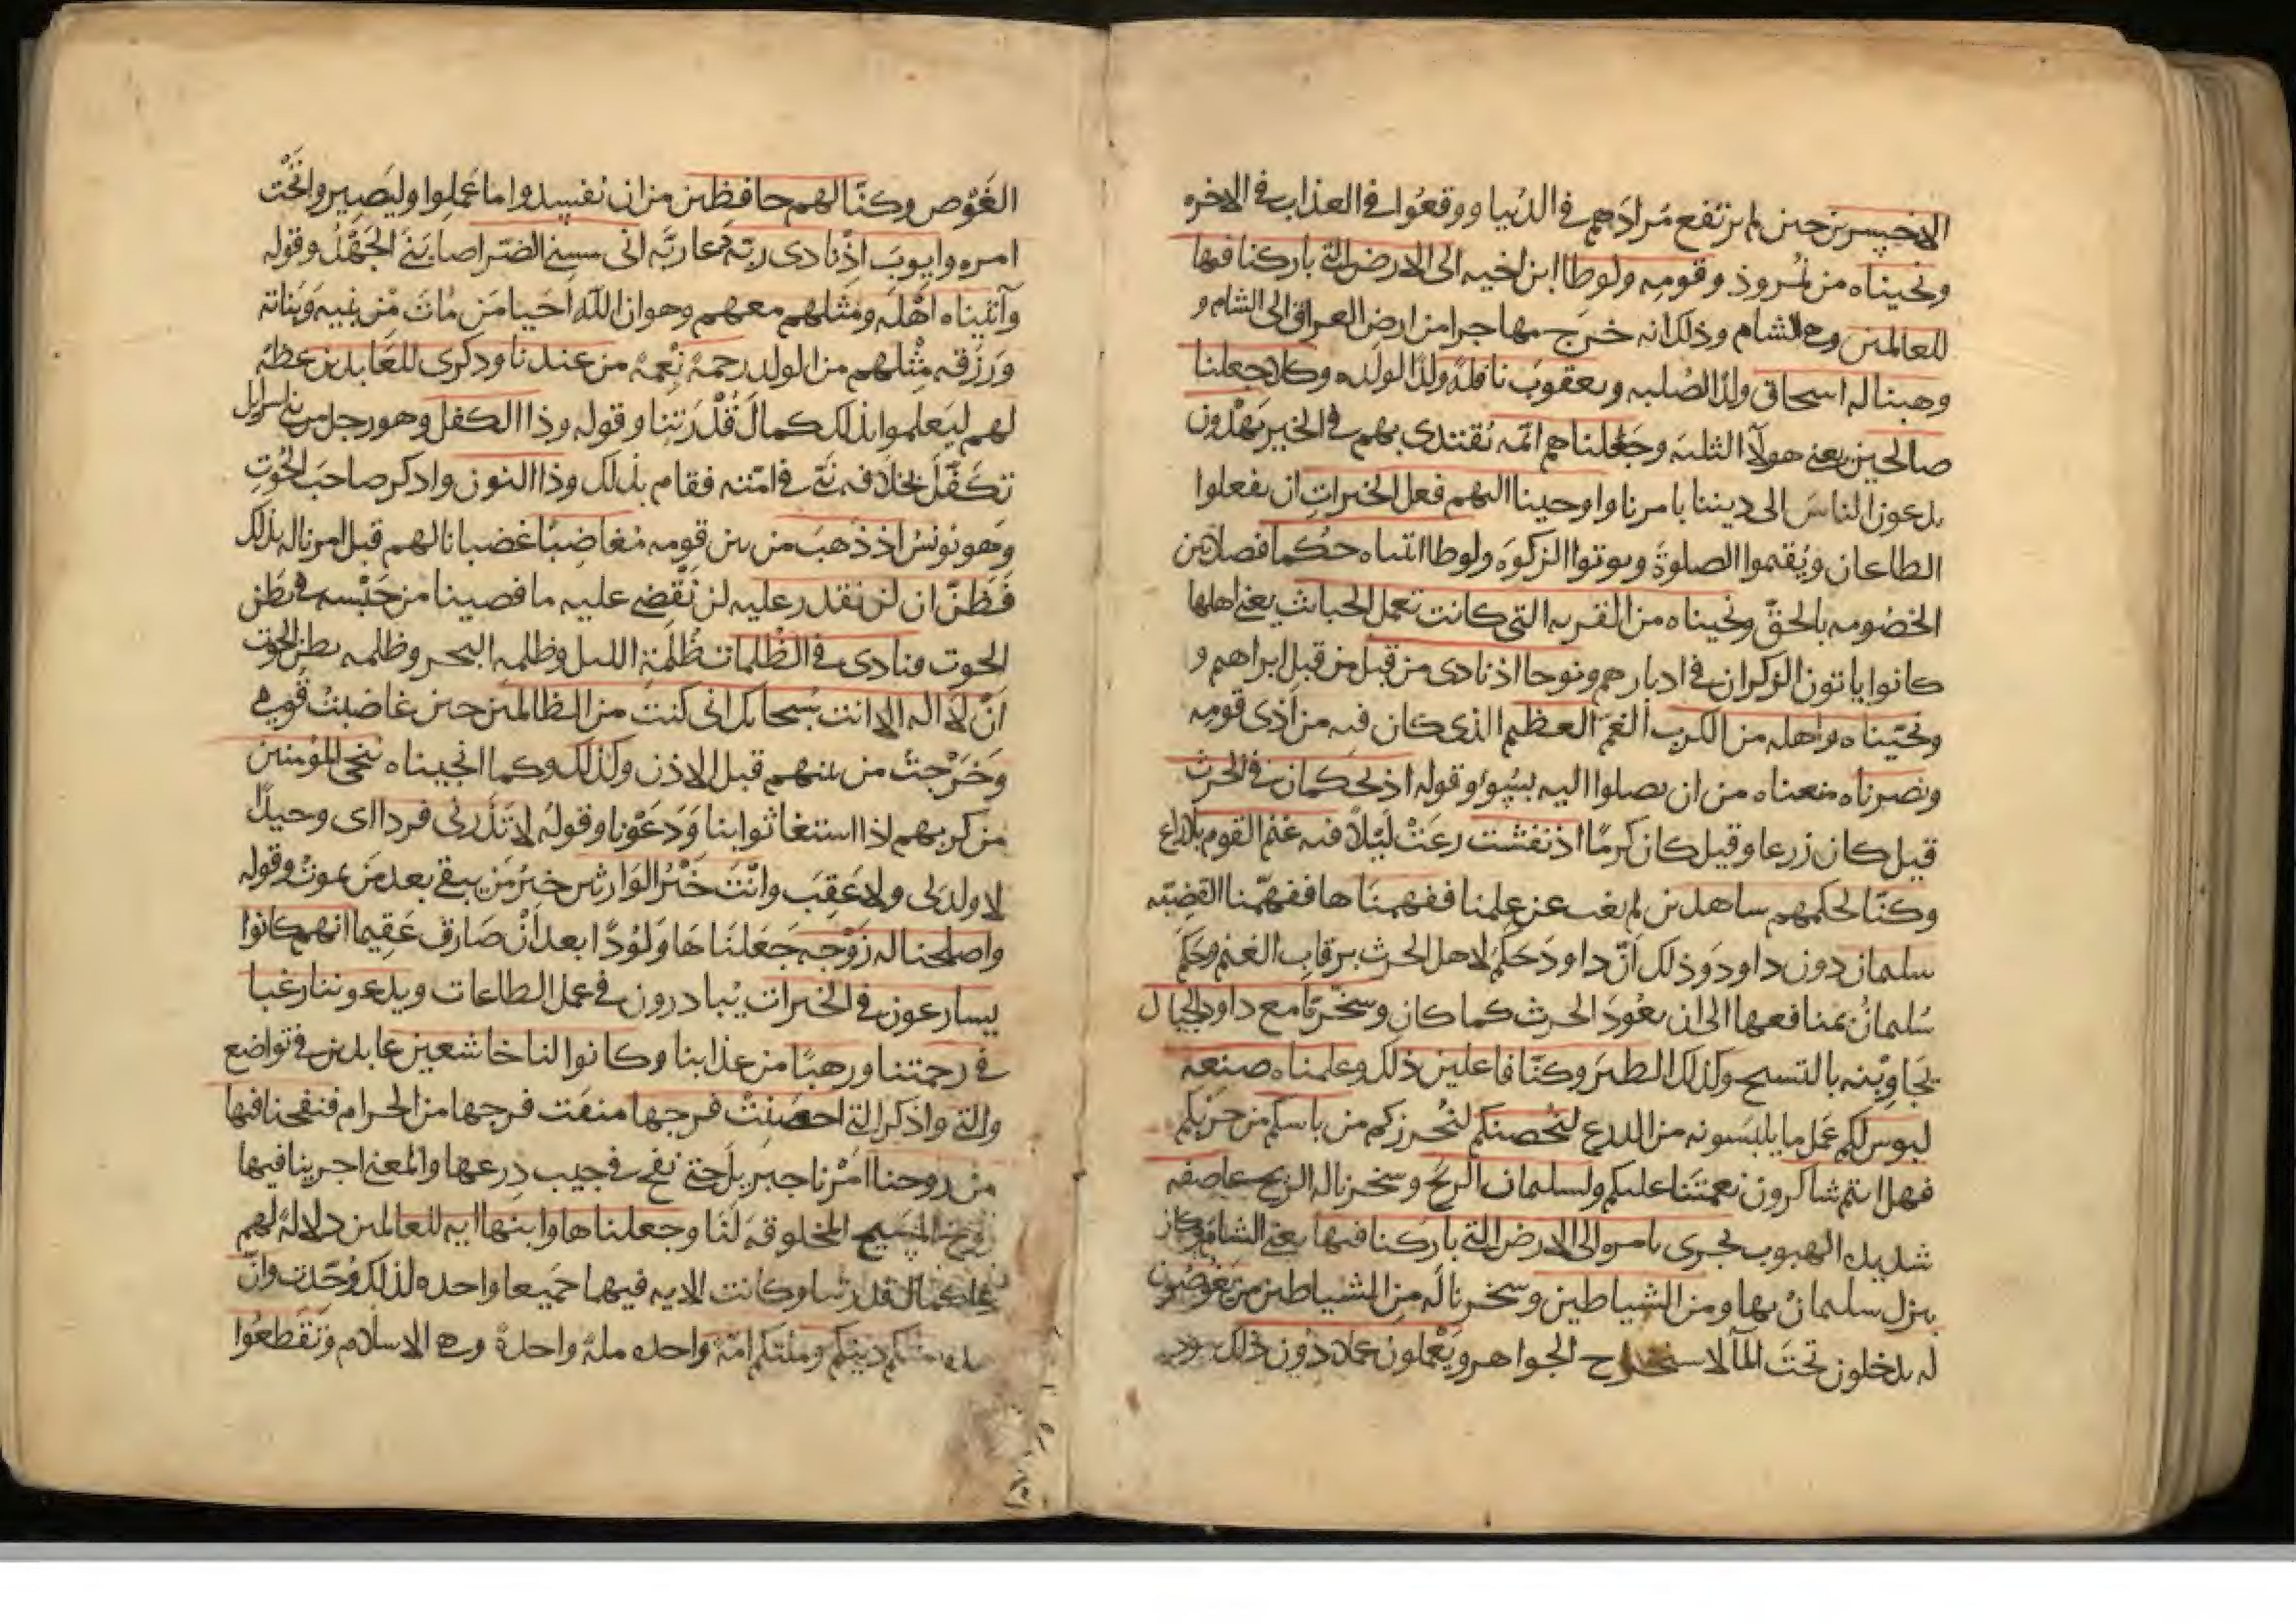 الاخسرين حين لم يرتفع مرادهم في الدنيا ووقعوا في العذاب في الاخره
ونجيناه من نمروذ وقومه ولوطا ابن اخيه الى الارض التي باركنا فيها
للعالمين وهي الشام وذلك انه خرج مهاجرا من ارض العراق الى الشام و
وهبنا له اسحاق ولدا لصلبه ويعقوب نافلة ولدا لولده وكلا جعلنا
صالحين يعني هولآ الثلثه وجعلناهم ائمه يقتدى بهم في الخير يهدون
يدعون الناس الى ديننا بامرنا واوحينا اليهم فعل الخيرات ان يفعلوا
الطاعات ويقيموا الصلوة ويوتوا الزكوة ولوطا اتيناه حكما فصلا بين
الخصومه بالحق ونجيناه من القريه التي كانت تعمل الخبائث يعني اهلها
كانوا ياتون الذكران في ادبارهم ونوحا اذ نادى من قبل من قبل ابراهيم و
ونجيناه واهله من الكرب الغم العظيم الذي كان فيه من اذى قومه
ونصرناه منعناه من ان يصلوا اليه بسوء وقوله اذ يحكمان في الحرث
قيل كان زرعا وقيل كان كرما اذ نفشت رعت ليلا فيه غنم القوم بلا راع
وكنا لحكمهم ساهدين لم يغب عن علمنا ففهمناها ففهمنا القضيه
سليمان دون داود وذلك ان داود حكم لاهل الحرث برقاب الغنم وحكم
سليمان بمنافعها الى ان يعود الحرث كما كان وسخرنا مع داود الجبال
يجاوبنه بالتسبيح وكذلك الطير وكنا فاعلين ذلك وعلمناه صنعه
لبوس لكم عمل ما يلبسونه من الدرع لتحصنكم لتحرزكم من باسكم من حربكم
فهل انتم شاكرون نعمتنا عليكم ولسليمان الريح وسخرنا له الريح عاصفه
شديده الهبوب تجرى بامره الى الارض التي باركنا فيها يعني الشام وكان
ينزل سليمان بها ومن الشياطين وسخرنا له من الشياطين من يغوصون
له يدخلون تحت المآ لاستخراج الجواهر ويعملون عملا دون ذلك
الغوص وكنا لهم حافظين من ان يفسدوا ما عملوا وليصيروا تحت
امره وايوب اذ نادى ربه دعا ربه انى مسني الضر اصابني الجهد وقوله
وآتيناه اهله ومثلهم معهم وهو ان الله احيا من مات من بنيه وبناته
ورزقه مثلهم من الولد رحمة نعمة من عندنا وذكرى للعابدين عظة
لهم ليعلموا بذلك كمال قدرتنا وقوله وذا الكفل وهو رجل من بني اسرايل
تكفل بخلافه نبي في امته فقام بذلك وذا النون واذكر صاحب الحوت
وهو يونس اذ ذهب من بين قومه مغاضبا غضبانا لهم قبل امرنا له بذلك
فظن ان لن نقدر عليه لن نقضي عليه ما قضينا من حبسه في بطن
الحوت فنادى في الظلمات ظلمة الليل وظلمه البحر وظلمه بطن الحوت
ان لا اله الا انت سبحانك انى كنت من الظالمين حين غاضبت قومي
وخرجت من بينهم قبل الاذن وكذلك وكما انجيناه ننجى المؤمنين
من كربهم اذا استغاثوا بنا ودعونا وقوله لا تذرنى فردا اى وحيدا
لا ولد لى ولا عقب وانت خير الوارثين خير من يبقى بعد من يموت وقوله
واصلحنا له زوجه جعلناها ولودا بعد ان صارت عقيما انهم كانوا
يسارعون في الخيرات يبادرون في عمل الطاعات ويدعوننا رغبا
في رحمتنا ورهبا من عذابنا وكانوا لنا خاشعين عابدين في تواضع
والتي واذكر التي احصنت فرجها منعت فرجها من الحرام فنفخنا فيها
من روحنا امرنا جبريل حتى نفخ في جيب درعها والمعنى اجرينا فيها
روح المسيح المخلوقه لنا وجعلناها وابنها ايه للعالمين دلالة لهم
على كمال قدرتنا وكانت الايه فيهما جميعا واحده لذلك وحدت وان
هذه امتكم دينكم وملتكم امة واحده ملة واحدة وهي الاسلام وتقطعوا